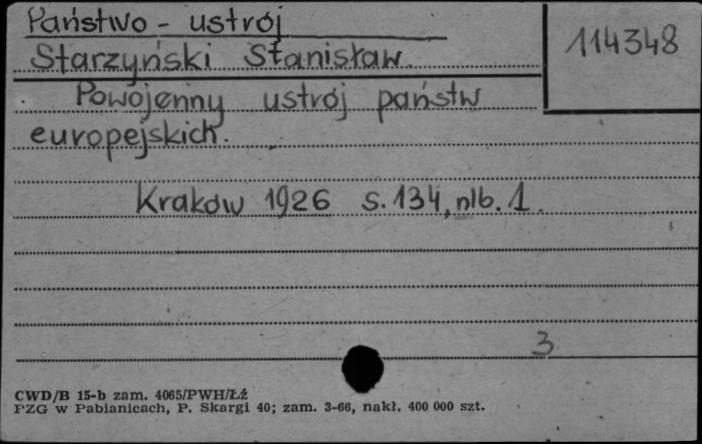 Państwo - ustrój
114348
Starzyński Stanisław.
Powojenny ustrój państw
europejskich.
Kraków 1926 s. 134, nlb. 1.
3
CWD/B 15-b zam. 4065/PWH/Łź
PZG w Pabianicach, P. Skargi 40; zam. 3-66, nakł. 400 000 szt.